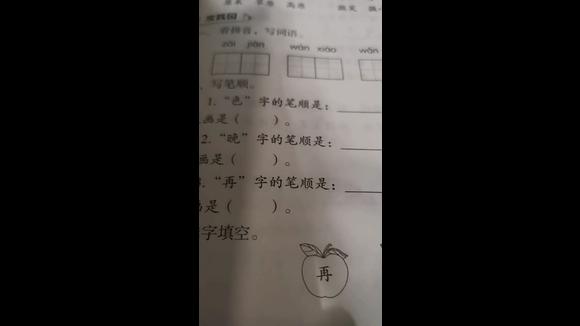 看拼音,写词语。
zài jiàn wǎn xiào wǎn
写笔顺。
1.“色”字的笔顺是:
画是( )。
2.“晚”字的笔顺是:
画是( )。
3.“再”字的笔顺是:
是( )。
字填空。
再